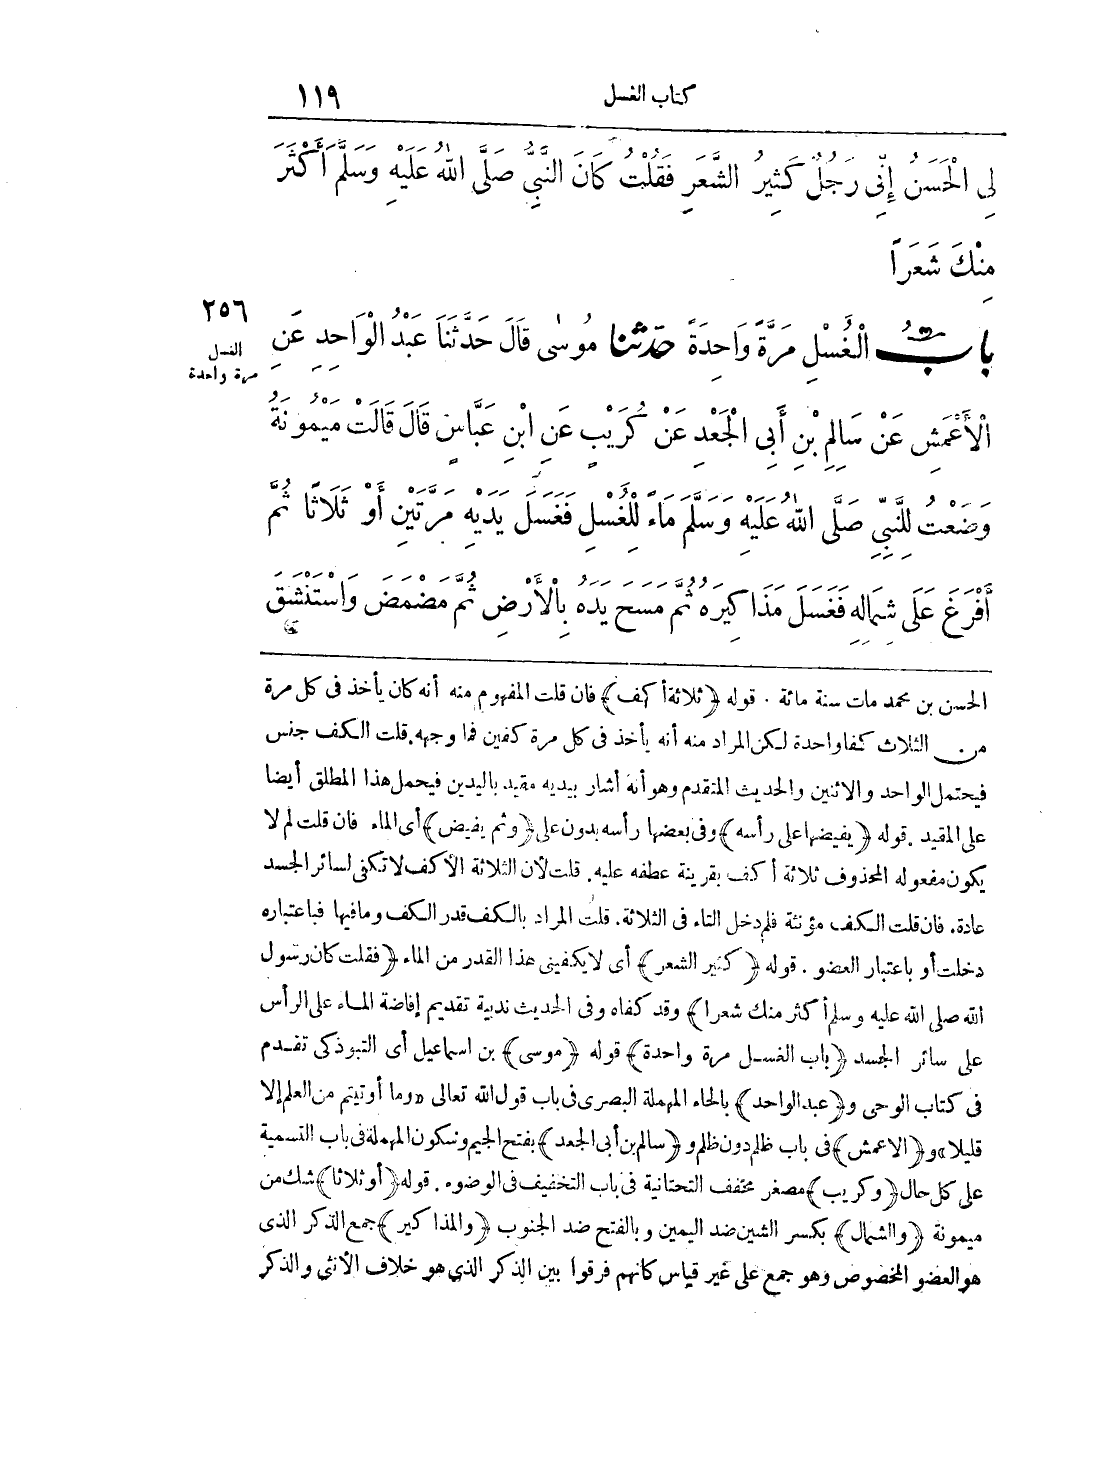 كتاب الغسل ١١٩
لِى الْحَسَنُ إِنِّى رَجُلٌ كَثِيرُ الشَّعَرِ فَقُلْتُ كَانَ النَّبِىُّ صَلَّى اللهُ عَلَيْهِ وَسَلَّمَ أَكْثَرَ
مِنْكَ شَعَرًا
٢٥٦
الغسل
مرة واحدة
بابُ الْغُسْلِ مَرَّةً وَاحِدَةً حدثنا مُوسٰى قَالَ حَدَّثَنَا عَبْدُ الْوَاحِدِ عَنِ
الْأَعْمَشِ عَنْ سَالِمِ بْنِ أَبِى الْجَعْدِ عَنْ كُرَيْبٍ عَنِ ابْنِ عَبَّاسٍ قَالَ قَالَتْ مَيْمُونَةُ
وَضَعْتُ لِلنَّبِىِّ صَلَّى اللهُ عَلَيْهِ وَسَلَّمَ مَاءً لِلْغُسْلِ فَغَسَلَ يَدَيْهِ مَرَّتَيْنِ أَوْ ثَلَاثًا ثُمَّ
أَفْرَغَ عَلَى شِمَالِهِ فَغَسَلَ مَذَاكِيرَهُ ثُمَّ مَسَحَ يَدَهُ بِالْأَرْضِ ثُمَّ مَضْمَضَ وَاسْتَنْشَقَ
الحسن بن محمد مات سنة مائة . قوله (ثلاثة أكف) فان قلت المفهوم منه أنه كان يأخذ فى كل مرة
من الثلاث كفا واحدة لكن المراد منه أنه يأخذ فى كل مرة كفين فما وجهه. قلت الكف جنس
فيحتمل الواحد والاثنين والحديث المتقدم وهو أنه أشار بيديه مقيد باليدين فيحمل هذا المطلق أيضا
على المقيد. قوله (يفيضها على رأسه) وفى بعضها رأسه بدون على (وثم يفيض) أى الماء فان قلت لم لا
يكون مفعوله المحذوف ثلاثة أكف بقرينة عطفه عليه. قلت لأن الثلاثة الأكف لا تكفى لسائر الجسد
عادة. فان قلت الكف مؤنثة فلم دخل التاء فى الثلاثة. قلت المراد بالكف قدر الكف وما فيها فباعتباره
دخلت أو باعتبار العضو. قوله (كثير الشعر) أى لا يكفينى هذا القدر من الماء (فقلت كان رسول
الله صلى الله عليه وسلم أكثر منك شعرا) وقد كفاه وفى الحديث ندبية تقديم إفاضة الماء على الرأس
على سائر الجسد (باب الغسل مرة واحدة) قوله (موسى) بن اسماعيل أى التبوذكى تقدم
فى كتاب الوحى و(عبد الواحد) بالحاء المهملة البصرى فى باب قول الله تعالى «وما أوتيتم من العلم إلا
قليلا» و(الاعمش) فى باب ظلم دون ظلم و(سالم بن أبى الجعد) بفتح الجيم وسكون المهملة فى باب التسمية
على كل حال (وكريب) مصغر مخفف التحتانية فى باب التخفيف فى الوضوء. قوله (أو ثلاثا) شك من
ميمونة (والشمال) بكسر الشين ضد اليمين وبالفتح ضد الجنوب (والمذاكير) جمع الذكر الذى
هو العضو المخصوص وهو جمع على غير قياس كانهم فرقوا بين الذكر الذى هو خلاف الأنثى والذكر